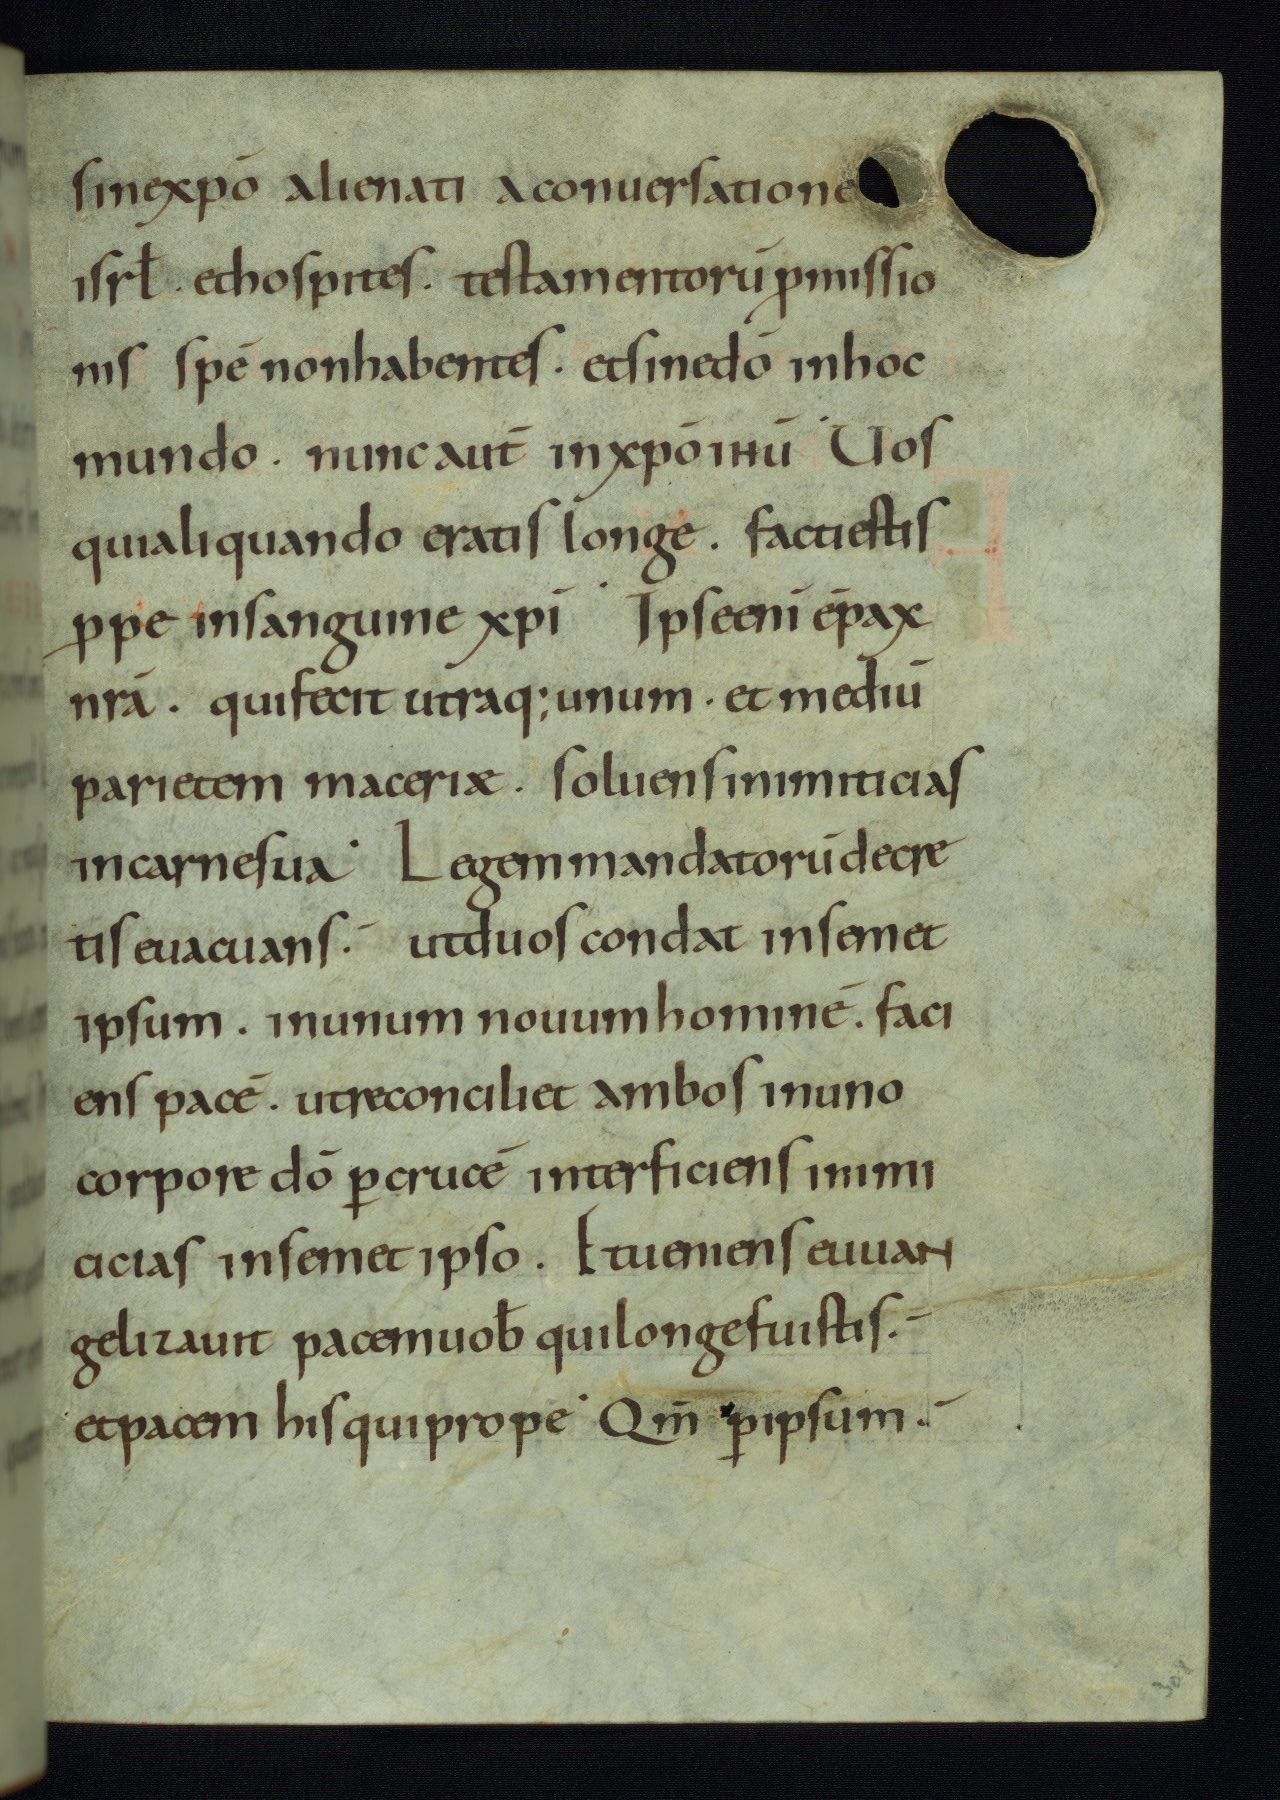 sinexpō alienati aconuersatione
isrł. ethospites. testamentorū pmissio
nis spē nonhabentes. etsinedō inhoc
mundo. nunc aut̄ inxpō ihū Uos
quialiquando eratis longe. factiestis
ppe insanguine xpī Ipseenī ē pax
nrā. quifecit utraq; unum. et mediū
parietem maceriæ. soluensinimiticias
incarnesua Legemmandatorū decre
tis euacuans. utduos condat insemet
ipsum. inunum nouumhominē. faci
ens pacē. utreconciliet ambos inuno
corpore dō ꝑcrucē interficiens inimi
cicias insemet ipso. Etueniens euuan
gelizauit pacemuob̄ quilongefuistis.
etpacem hisquiprope Qm̄ ꝑipsum.
308